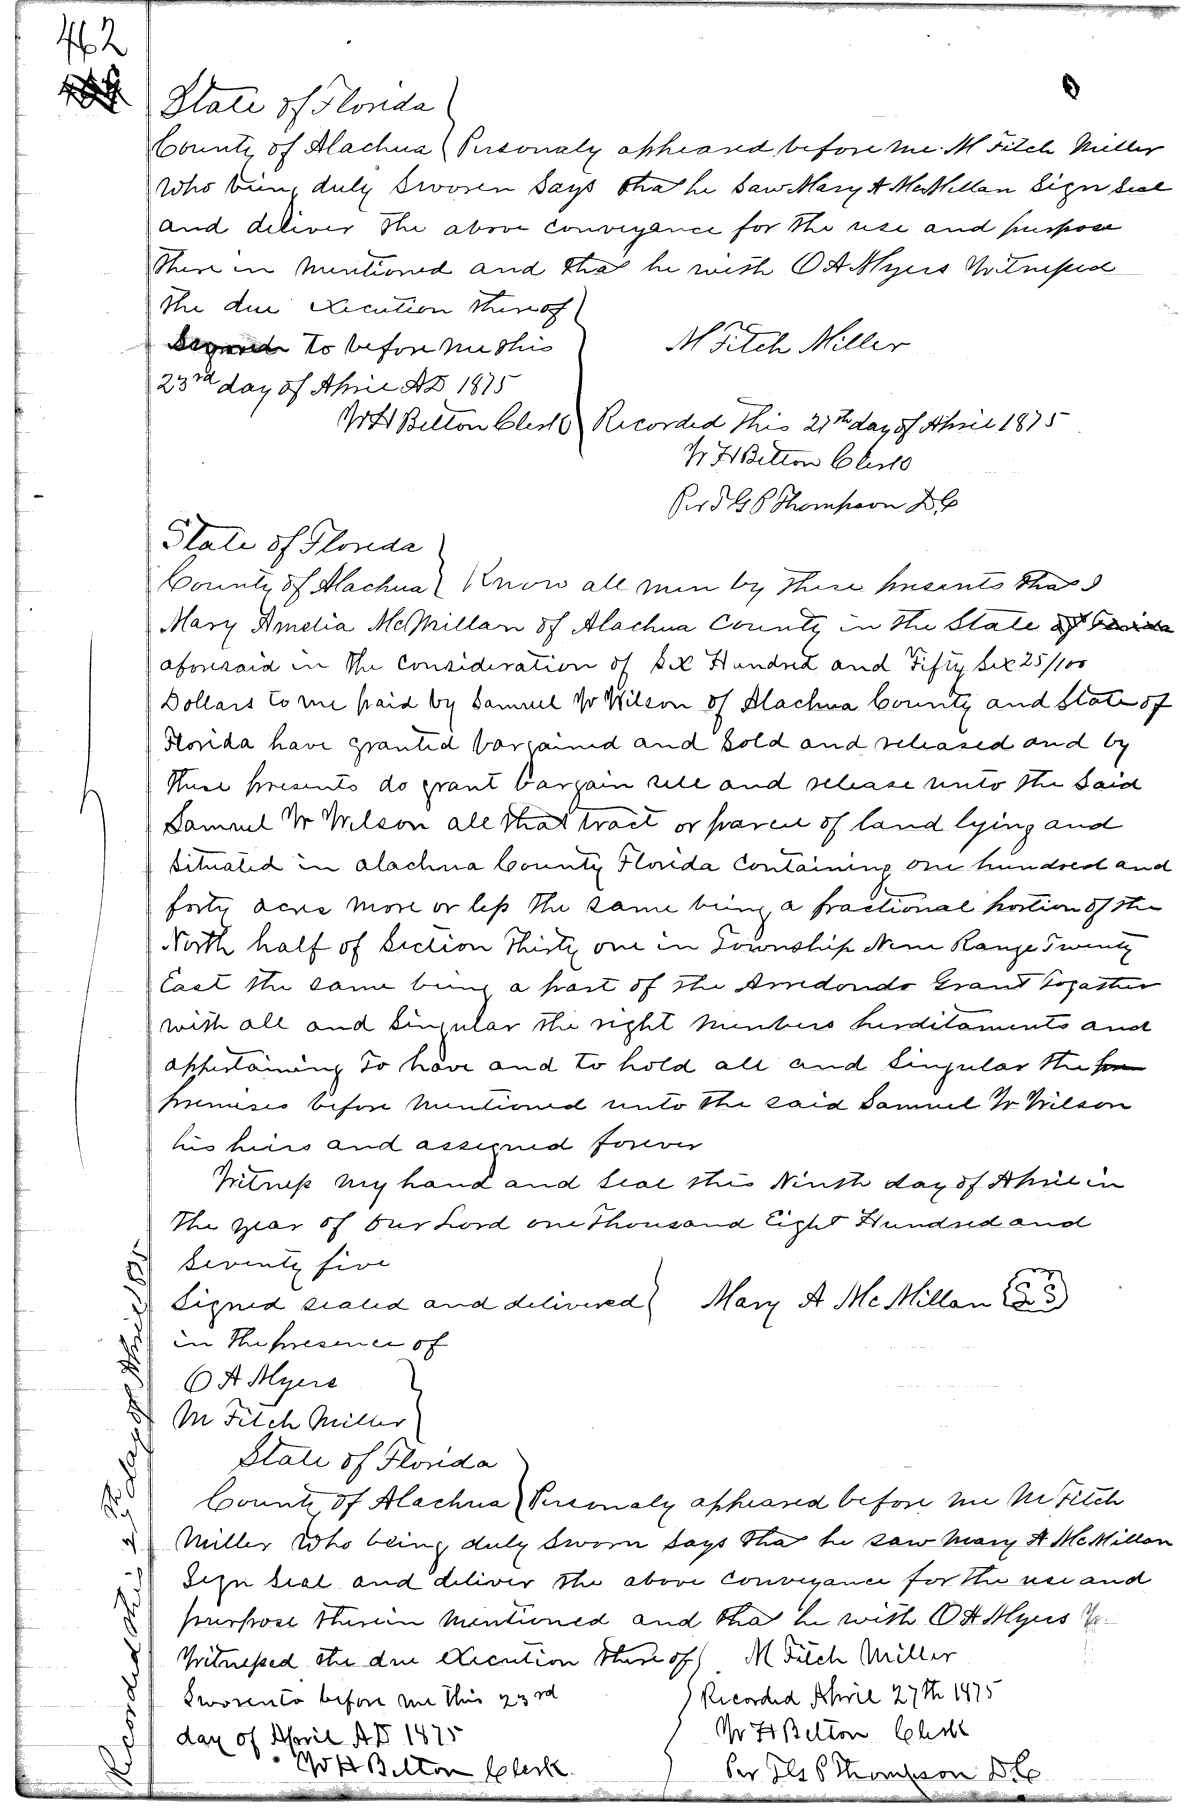 462
State of Florida
County of Alachua Personaly appeared before me M Fitch Miller
who being duly Sworen Says that he Saw Mary A McMillan Sign Seal
and deliver the above conveyance for the use and purpose
there in mentioned and that he with O A Myers Witnessed
the due execution thereof
to before me this
M Fitch Miller
23rd day of April AD 1875
W H Belton Clerk
Recorded this 27th day of April 1875
W H Belton Clerk
Per T G P Thompson D.C
State of Florida
County of Alachua Know all men by these presents that I
Mary Amelia McMillan of Alachua County in the State of Florida
aforesaid in the consideration of Six Hundred and Fifty Six 25/100
Dollars to me paid by Samuel W Wilson of Alachua County and State of
Florida have granted bargained and Sold and released and by
these presents do grant bargain sell and release unto the Said
Samuel W Wilson all that tract or parcel of land lying and
Situated in alachua County Florida Containing one hundred and
forty acres more or less the same being a fractional portion of the
North half of Section Thirty one in Township Nine Range Twenty
East the same being a part of the Arredondo Grant Together
with all and Singular the right members herditaments and
appertaining To have and to hold all and Singular the pre
premises before mentioned unto the said Samuel W Wilson
his heirs and assigned forever
Witness my hand and Seal this Ninth day of April in
the year of our Lord one Thousand Eight Hundred and
Seventy five
Signed sealed and delivered
Mary A McMillan L S
in the presence of
O A Myers
M Fitch Miller
State of Florida
County of Alachua Personaly appeared before me M Fitch
Miller who being duly Sworn Says that he saw Mary A McMillan
Sign Seal and deliver the above conveyance for the use and
purpose therein mentioned and that he with O A Myers
Witnessed the due execution there of
M Fitch Miller
Sworento before me this 23rd
day of April AD 1875
W H Belton Clerk
Recorded April 27th 1875
W H Belton Clerk
Per T G P Thompson D.C
Recorded this 27th day of April 1875